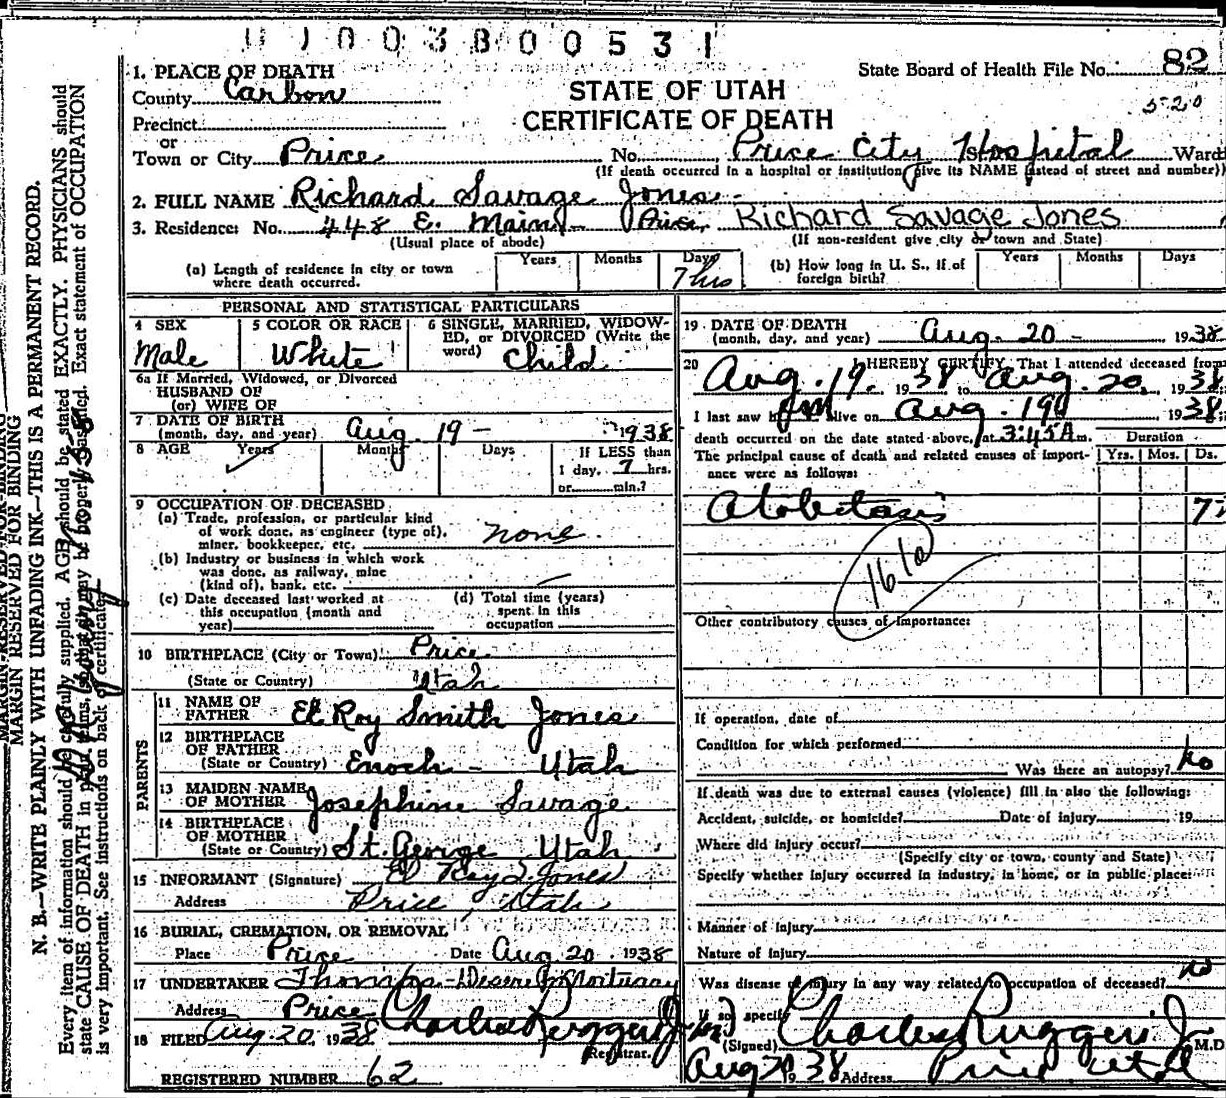 003800531
State Board of Health File No. 82
520
1. PLACE OF DEATH
County Carbon
STATE OF UTAH
CERTIFICATE OF DEATH
Precinct
or
Town or City Price No. Price City Hospital St. Ward
(If death occurred in a hospital or institution give its NAME instead of street and number)
2. FULL NAME Richard Savage Jones
3. Residence: No. 448 E. Main Price. Richard Savage Jones
(Usual place of abode) (If non-resident give city or town and State)
(a) Length of residence in city or town where death occurred. Years Months Days 7 hrs
(b) How long in U. S., if of foreign birth? Years Months Days
PERSONAL AND STATISTICAL PARTICULARS
4 SEX Male
5 COLOR OR RACE White
6 SINGLE, MARRIED, WIDOWED, OR DIVORCED (Write the word) Child
6a If Married, Widowed, or Divorced
HUSBAND OF
(or) WIFE OF
7 DATE OF BIRTH
(month, day, and year) Aug. 19 - 1938
8 AGE Years Months Days If LESS than
1 day, 7 hrs.
or min.?
9 OCCUPATION OF DECEASED
(a) Trade, profession, or particular kind
of work done, as engineer (type of),
miner, bookkeeper, etc. none.
(b) Industry or business in which work
was done, as railway, mine
(kind of), bank, etc.
(c) Date deceased last worked at
this occupation (month and
year)
(d) Total time (years)
spent in this
occupation
10 BIRTHPLACE (City or Town) Price
(State or Country) Utah
PARENTS
11 NAME OF
FATHER El Roy Smith Jones
12 BIRTHPLACE
OF FATHER
(State or Country) Enoch - Utah
13 MAIDEN NAME
OF MOTHER Josephine Savage
14 BIRTHPLACE
OF MOTHER
(State or Country) St. George Utah
15 INFORMANT (Signature) El Roy S Jones
Address Price, Utah
16 BURIAL, CREMATION, OR REMOVAL
Place Price Date Aug 20. 1938
17 UNDERTAKER Mortuary
Address Price
18 FILED Aug. 20, 1938 Charles Ruggeri Jr
Registrar.
REGISTERED NUMBER 62
19 DATE OF DEATH
(month, day, and year) Aug. 20 - 1938
20 I HEREBY CERTIFY, That I attended deceased from
Aug. 19. 1938 to Aug. 20. 1938
I last saw him alive on Aug. 19 1938;
death occurred on the date stated above, at 3:45 A m.
The principal cause of death and related causes of importance were as follows:
Duration
Yrs. Mos. Ds.
161a
Other contributory causes of importance:
If operation, date of
Condition for which performed
Was there an autopsy? No
If death was due to external causes (violence) fill in also the following:
Accident, suicide, or homicide? Date of injury 19
Where did injury occur?
(Specify city or town, county and State)
Specify whether injury occurred in industry, in home, or in public place:
Manner of injury
Nature of injury
Was disease or injury in any way related to occupation of deceased? no
If so, specify
(Signed) Charles Ruggeri Jr M.D
Aug 20 1938 Address Price, Utah
MARGIN RESERVED FOR BINDING
N. B.—WRITE PLAINLY WITH UNFADING INK—THIS IS A PERMANENT RECORD.
Every item of information should be carefully supplied. AGE should be stated EXACTLY. PHYSICIANS should
state CAUSE OF DEATH in plain terms, so that it may be properly classified. Exact statement of OCCUPATION
is very important. See instructions on back of certificate.